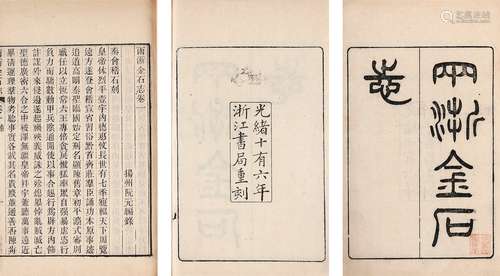 兩浙金石
志
光緒十有六年
浙江書局重刻
兩浙金石志卷一
揚州阮元編錄
秦會稽石刻
皇帝休烈平壹宇內德惠攸長卅有七季寴輏天下周覽
遠方遂登會稽宣省習俗黔首齊莊羣臣誦功本原事迹
追道高明秦聖臨國始定刑名顯陳舊章初平灋式審別
職任以立恆常六王專倍貪戾慠猛率眾自强暴虐恣行
負力而驕數動甲兵陰通閒使以事合從行爲辟方內飾
詐謀外來侵邊遂起禍殃義威誅之殄熄暴悖亂賊滅亡
聖德廣密六合之中被澤無疆皇帝并宇兼聽萬事遠近
畢清運理羣物考驗事實各載其名貴賤並通善否陳前